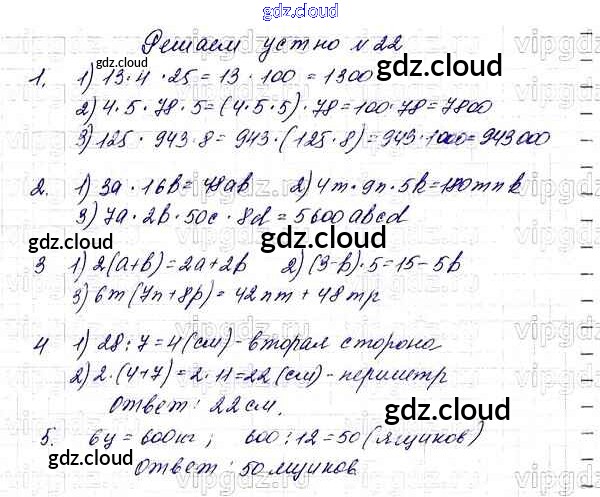 gdz.cloud
Решаем устно №22
1. 1) 13·4·25=13·100=1300
gdz.cloud
2) 4·5·78·5=(4·5·5)·78=100·78=7800
3) 125·943·8=943·(125·8)=943·1000=943000
gdz.cloud
2. 1) 3a·16b=48ab 2) 4m·9n·5k=180mnk
3) 7a·2b·50c·8d=5600abcd
gdz.cloud
gdz.cloud
3 1) 2(a+b)=2a+2b 2) (3-b)·5=15-5b
3) 6m(7n+8p)=42nm+48mp
gdz.cloud
4 1) 28:7=4(см)-вторая сторона
2) 2·(4+7)=2·11=22(см)-периметр
Ответ: 22см.
gdz.cloud
5. 6ц=600кг; 600:12=50(ящиков)
gdz.cloud
Ответ: 50 ящиков
gdz.cloud